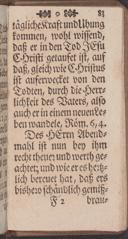 81
tägliche Kraft und Ubung
kommen, wohl wissend,
daß er in den Tod JEsu
Christi getaufet ist, auf
daß, gleich wie Christus
ist auferwecket von den
Todten, durch die Herr-
lichkeit des Vaters, also
auch er in einem neuen Le-
ben wandele, Röm. 6, 4.
Des HErrn Abend-
mahl ist nun bey ihm
recht theuer und werth ge-
achtet; und wie er es hertz-
lich bereuet hat, daß ers
bishero schändlich gemiß-
F 2 brau-